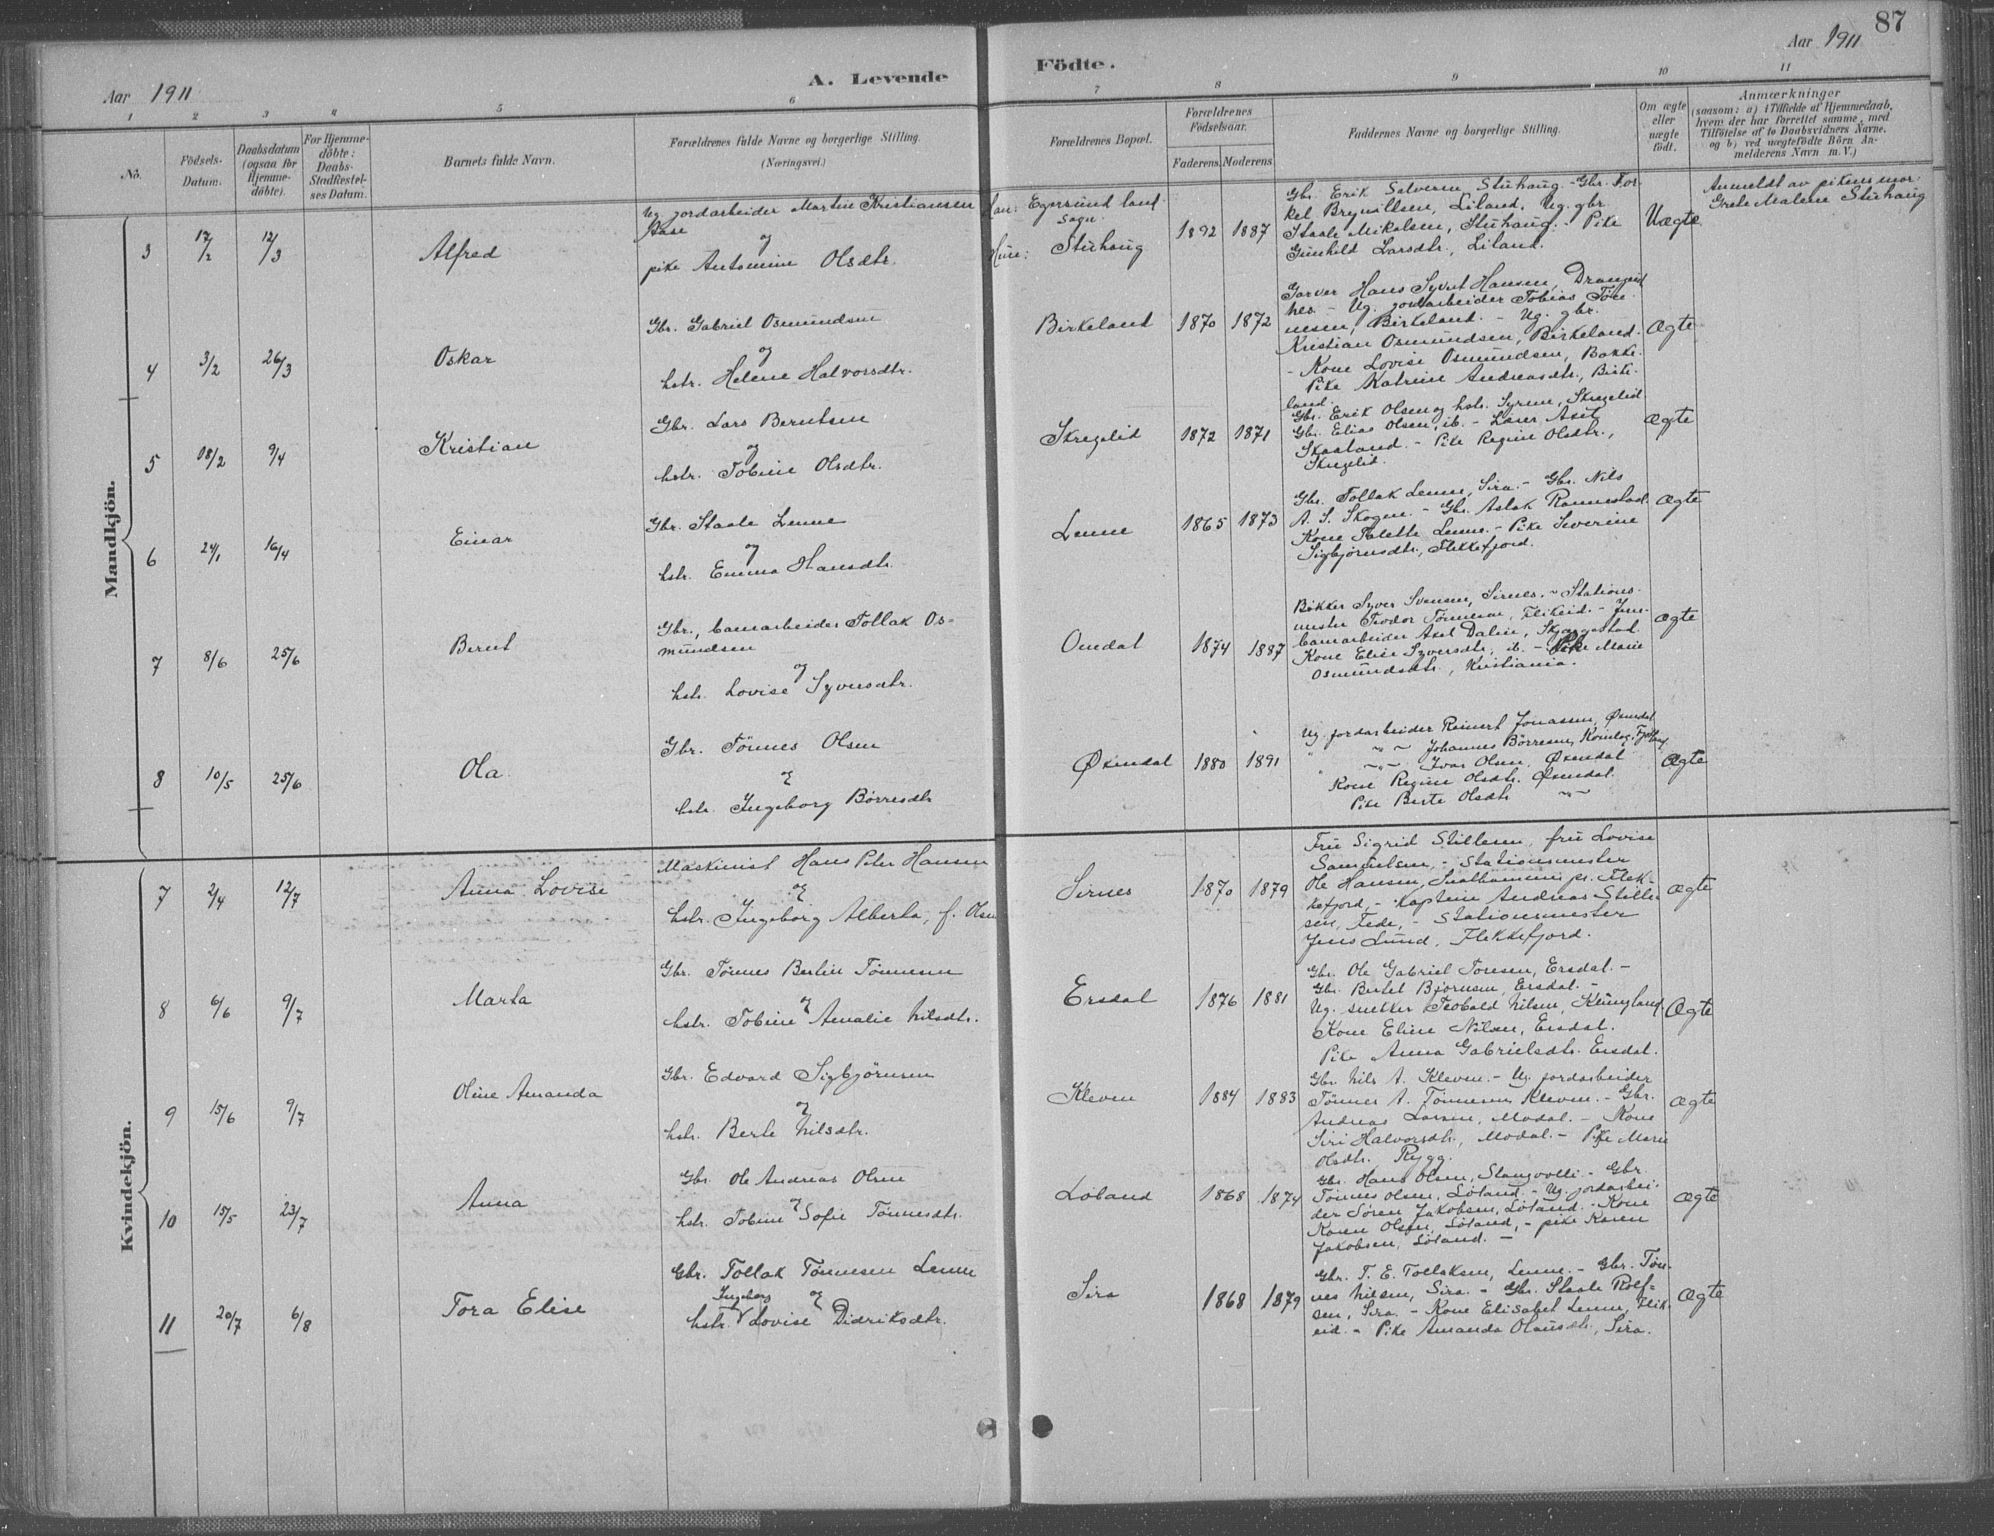 87
Aar 1911
A. Levende Födte.
Aar 1911
1 2 3 4 5 6 7 8 9 10 11
No.
Födsels-Datum.
Daabsdatum (ogsaa for Hjemme-döbte).
For Hjemme-döbte: Daabs-Stadfæstel-ses Datum.
Barnets fulde Navn.
Forældrenes fulde Navne og borgerlige Stilling.
(Næringsvei.)
Forældrenes Bopæl.
Forældrenes Födselsaar.
Faderens. Moderens.
Faddernes Navne og borgerlige Stilling.
Om ægte eller uægte födt.
Anmærkninger
(saasom: a) i Tilfælde af Hjemmedaab,
hvem der har forrettet samme, med
Tilföielse af to Daabsvidners Navne.
og b) ved uægtefödte Börn An-
melderens Navn m. V.)
Mandkjön.
3 17/2 12/3 Alfred
Ug. jordarbeider Martin Kristiansen
og
pike Antomine Olsdtr.
Han: Egersund land sogn.
Hun: Stuhaug
1892 1887
Gbr. Erik Salvesen Stuhaug. - Gbr. Tor-
kel Brynildsen, Liland. Ug. gbr.
Staale Mikalsen, Stuhaug. - Pike
Gunhild Larsdtr., Liland.
Uægte
Anmeldt av pikens mor:
Grete Malene Stuhaug
4 3/2 26/3 Oskar
Gbr. Gabriel Osmundsen
og
hstr. Helene Halvorsdtr.
Birkeland 1870 1872
Garver Hans Syvert Hansen, Drangeid
nes - Ug. jordarbeider Tobias Tøn-
nesen, Birkeland. - Ug. gbr.
Kristian Osmundsen, Birkeland.
- Kone Lovise Osmundsen, Bakke.
Pike Katrine Andreasdtr., Birke-
land.
Ægte
5 18/2 9/4 Kristian
Gbr. Lars Berntsen
og
hstr. Tobine Olsdtr.
Skregelid 1872 1871
Gbr. Erik Olsen og hstr. Syrine, Skregelid
Gbr. Elias Olsen, ib. - Lærer Axel
Skaaland. - Pike Regine Olsdtr.,
Skregelid.
Ægte
6 24/1 16/4 Einar
Gbr. Staale Lenne
og
hstr. Emma Hansdtr.
Lenne 1865 1873
Gbr. Tollak Lenne, Sira. - Gbr. Nils
A. S. Skogen. - Gbr. Aslak Rannestad.
Kone Lenne. - Pike Severine
Sigbjørnsdtr., Flekkefjord.
Ægte
7 8/6 25/6 Bernt
Gbr., banearbeider Tollak Os-
mundsen
og
hstr. Lovise Syversdtr.
Omdal 1874 1887
Bøkker Syver Svensen, Sirnes. - Stations-
mester Teodor Tønnesen, Flikeid. - Jern-
banearbeider Axel Dalen,
Kone Elise Syversdtr., ib. - Pike Marie
Osmundsdtr., Kristiania.
Ægte
8 10/5 25/6 Ola
Gbr. Tønnes Olsen
og
hstr. Ingeborg Børresdtr.
Øxendal 1880 1891
Ug. jordarbeider Reinert Jonassen, Øxendal
" " Johannes Børresen,
" " Ivar Olsen, Øxendal
Kone Regine Olsdtr. Øxendal.
Pike Berte Olsdtr. "
Ægte
Kvindekjön.
7 2/4 12/7 Anna Lovise
Maskinist Hans Peter Hansen
og
hstr. Ingeborg Alberta, f. Olsen
Sirnes 1870 1879
Fru Sigrid Stillesen, fru Lovise
Samuelsen, - Stationsmester
Ole Hansen, pr. Flek-
kefjord, - Kaptein Andreas Stille-
sen, Fede, - Stationsmester
Jens Lund, Flekkefjord.
Ægte
8 6/6 9/7 Marta
Gbr. Tønnes Berlin Tønnesen
og
hstr. Tobine Amalie Nilsdtr.
Ersdal 1876 1881
Gbr. Ole Gabriel Toresen, Ersdal. -
Gbr. Bertel Bjørnsen, Ersdal. -
Ug. snekker Teobald Nilsen, Klungland.
Kone Eline Nilsen, Ersdal.
Pike Anna Gabrielsdtr. Ersdal.
Ægte
9 15/6 9/7 Oline Amanda
Gbr. Edvard Sigbjørnsen
og
hstr. Berte Nilsdtr.
Kleven 1884 1883
Gbr. Nils A. Kleven. - Ug. jordarbeider
Tønnes A. Tønnesen, Kleven. - Gbr.
Andreas Larsen, Modal. - Kone
Siri Halvorsdtr., Modal. - Pike Marie
Olsdtr. Rygg.
Ægte
10 15/5 23/7 Anna
Gbr. Ole Andreas Olsen
og
hstr. Tobine Sofie Tønnesdtr.
Løland 1868 1874
Gbr. Hans Olsen, Stangvolli - Gbr.
Tønnes Olsen, Løland. - Ug. jordarbei-
der Søren Jakobsen, Løland. - Kone
Karen Olsen, Løland, - pike Karen
Jakobsen, Løland. -
Ægte
11 20/7 6/8 Tora Elise
Gbr. Tollak Tønnesen Lenne
og
hstr. Ingeborg Lovise Didriksdtr.
Sira 1868 1879
Gbr. T. E. Tollaksen, Lenne. - Gbr. Tøn-
nes Nilsen, Sira. - Gbr. Staale Rolf-
sen, Sira. - Kone Elisabet Lenne, Flik-
eid. - Pike Amanda Olausdtr., Sira.
Ægte